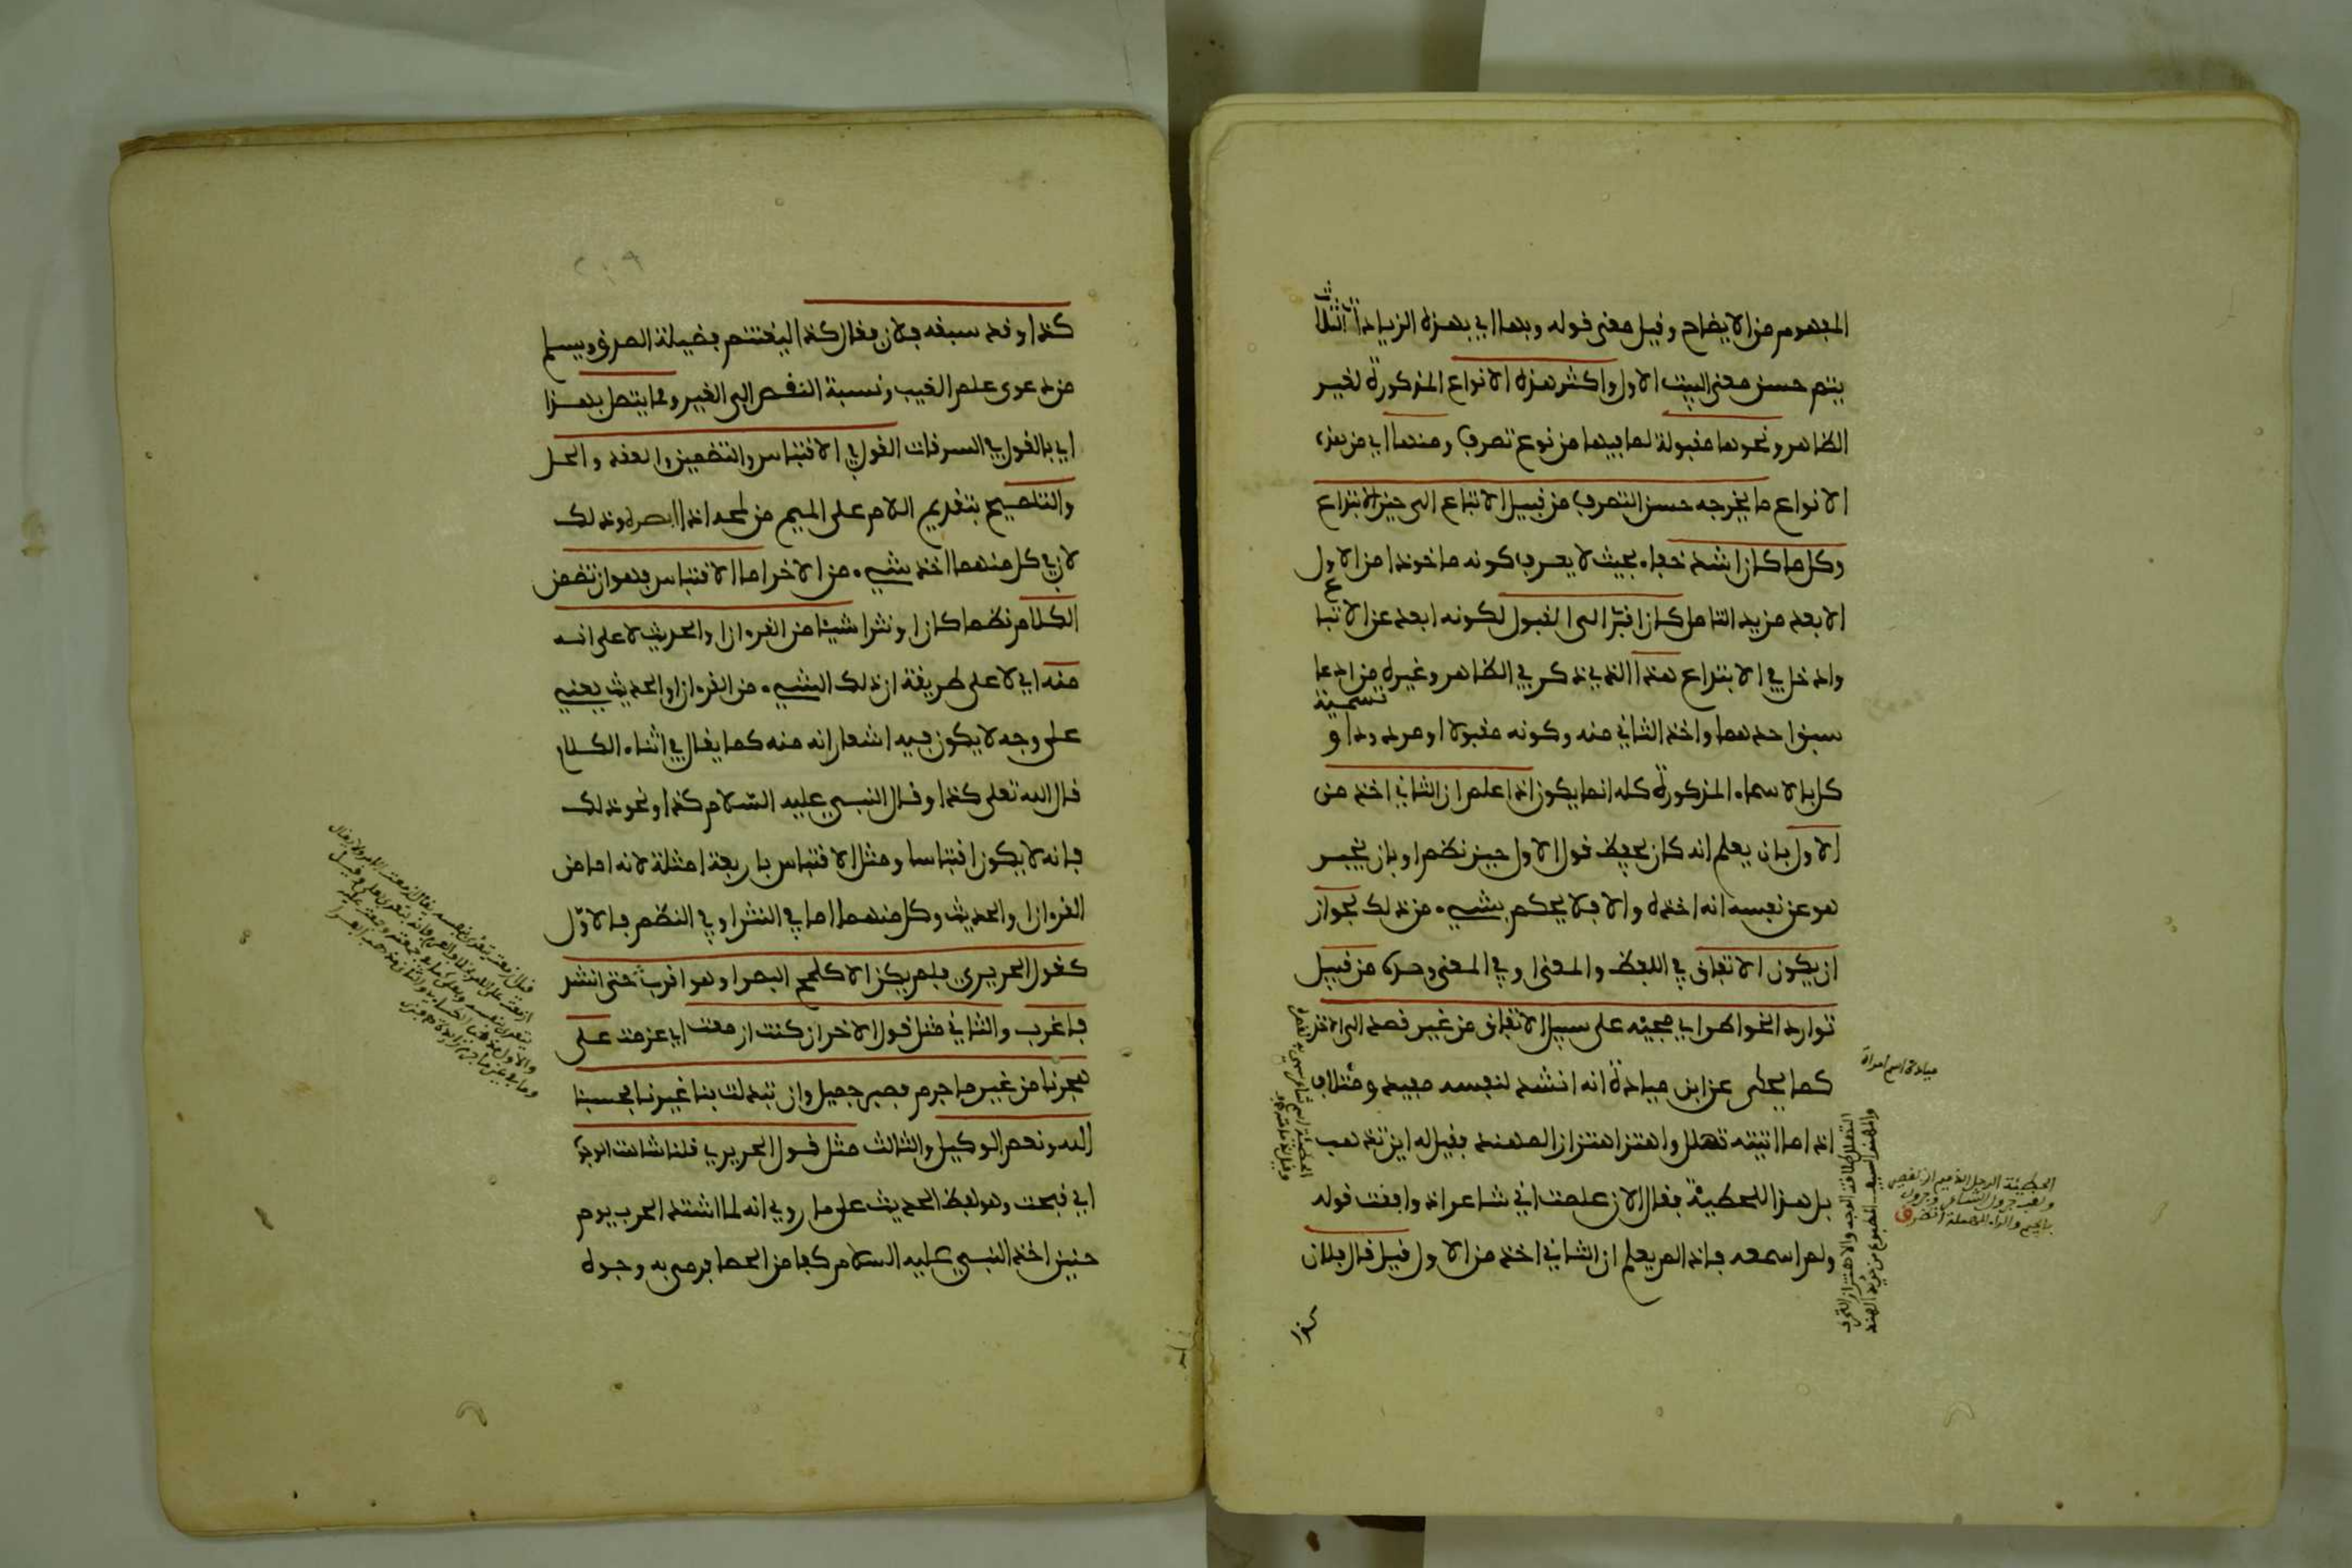 المفهوم من الايضاح وقيل معنى قوله وبهما اي بهذه الزيادات الثلاث
يتم حسن معنى البيت الاول واكثر هذه الانواع المذكورة لغير
الظاهر ونحوها مقبولة لما فيها من نوع تصرف ومنها اي من هذه
الانواع ما يخرجه حسن التصرف من قبيل الاتباع الى حيز الابتداع
وكل ما كان اشد خفاء بحيث لا يعرف كونه ماخوذا من الاول
الا بعد مزيد التامل كان اقرب الى القبول لكونه ابعد عن الاتباع
وادخل في الابتداع هذا الذي ذكر في الظاهر وغيره من ادعا
سبق احدهما واخذ الثاني منه وكونه مقبولا او مردودا و تسمية
كل بالاسماء المذكورة كله انما يكون اذا علم ان الثاني اخذ من
الاول بان يعلم انه كان يحفظ قول الاول حين نظم او بان يخبر
هو عن نفسه انه اخذه والا فلا يحكم بشيء من ذلك لجواز
ان يكون الاتفاق في اللفظ والمعنى او في المعنى وحده من قبيل
توارد الخواطر اي مجيئه على سبيل الاتفاق من غير قصد الى الاخذ
كما يحكى عن ابن ميادة انه انشد لنفسه مفيد ومتلاف
اذا ما اتيته تهلل واهتز اهتزاز المهند فقيل له اين تذهب
بل هذا للحطيئة فقال الان علمت اني شاعر اذ وافقت قوله
ولم اسمعه فاذا لم يعلم ان الثاني اخذ من الاول قيل قال فلان
كذا
ميادة اسم امراة
الحطيئة الرجل الذميم او القصير
ولقب جرول الشاعر وجرول
بالجيم والراء المهملة
التهلل طلاقة الوجه والاهتزاز التحرك
والمهند السيف المطبوع من حديد الهند
كذا وقد سبقه فلان فقال كذا ليغتنم فضيلة الصدق ويسلم
من دعوى علم الغيب ونسبة النقص الى الغير ومما يتصل بهذا
اي بالقول في السرقات القول في الاقتباس والتضمين والعقد والحل
والتلميح بتقديم اللام على الميم من لمحه اذا ابصره وذلك
لان في كل منهما اخذ شيء من الاخر اما الاقتباس فهو ان تضمن
الكلام نظما كان او نثرا شيئا من القرءان او الحديث لا على انه
منه اي لا على طريقة ان ذلك الشيء من القرءان او الحديث يعني
على وجه لا يكون فيه اشعار انه منه كما يقال في اثناء الكلام
قال الله تعلى كذا وقال النبي عليه السلام كذا ونحو ذلك
فانه لا يكون اقتباسا ومثل الاقتباس باربعة امثلة لانه اما من
القرءان او الحديث وكل منهما اما في النثر او في النظم فالاول
كقول الحريري فلم يكن الا كلمح البصر او هو اقرب حتى انشد
فاغرب والثاني مثل قول الاخر ان كنت ازمعت اي عزمت على
هجرنا من غير ما جرم فصبر جميل وان تبدلت بنا غيرنا فحسبنا
الله ونعم الوكيل والثالث مثل قول الحريري قلنا شاهت الوجوه
اي قبحت وهو لفظ الحديث على ما روي انه لما اشتد الحرب يوم
حنين اخذ النبي عليه السلام كفا من الحصا فرمى به وجوه